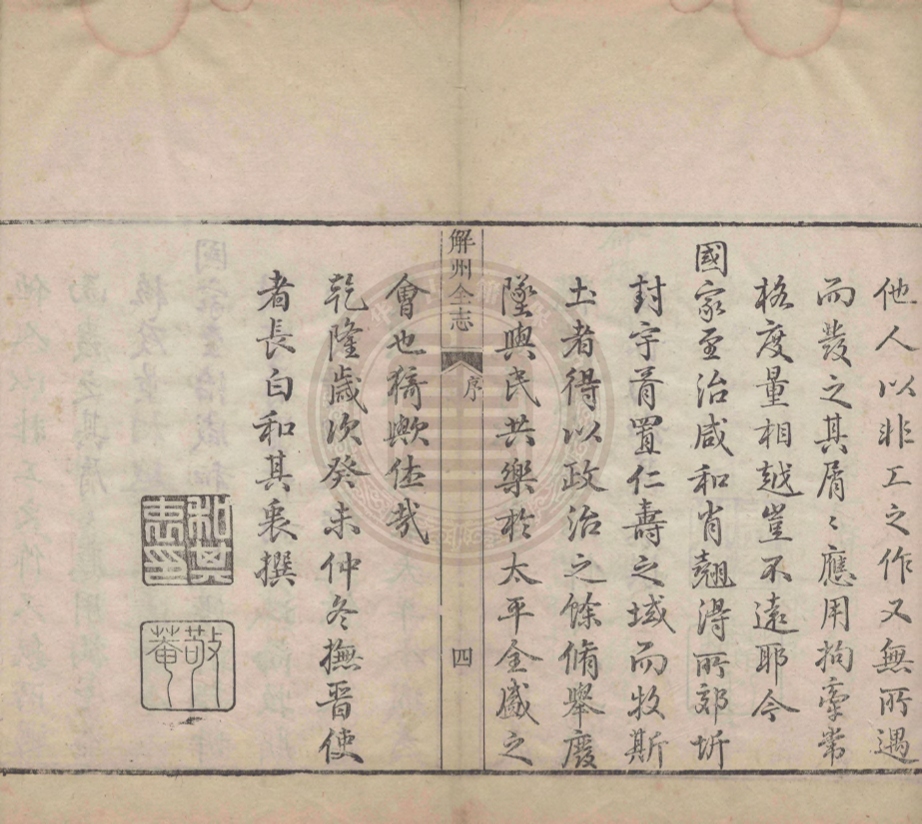 他人以非工之作又無所遇
而發之其屑〻應用拘牽常
格度量相越豈不遠耶今
國家至治咸和肖翹得所郊圻
封宇胥置仁壽之域而牧斯
土者得以政治之餘脩舉廢
墜與民共樂於太平全盛之
解州全志
序
四
會也猗歟休哉
乾隆歲次癸未仲冬撫晉使
者長白和其衷撰
和其衷印
敬菴